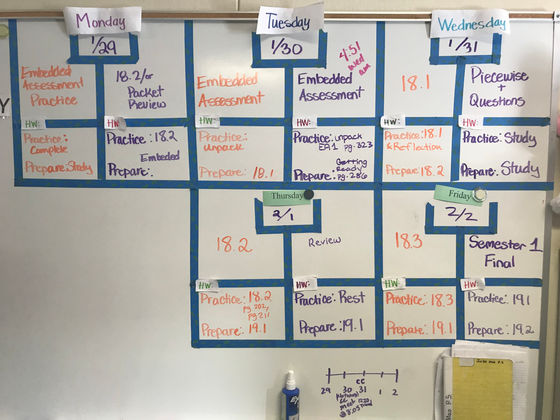 Monday
1/29
Embedded
Assessment
Practice
18.2/or
Packet
Review
HW:
Practice:
Complete
Prepare: Study
HW:
Practice: 18.2
Embeded
Prepare:
Tuesday
1/30
Embedded
Assessment
4:51
wed
am
Embedded
Assessment
HW:
Practice:
Unpack
Prepare: 18.1
HW:
Practice: unpack
EA1 pg. 323
Getting
Ready
Prepare: pg. 286
Wednesday
1/31
18.1
Piecewise
+
Questions
HW:
Practice: 18.1
& Reflection
Prepare: 18.2
HW:
Practice: Study
Prepare: Study
Thursday
2/1
18.2
Review
HW:
Practice: 18.2
Prepare: 19.1
HW:
Practice: Rest
Prepare: 19.1
Friday
2/2
18.3
Semester 1
Final
HW:
Practice: 18.3
Prepare: 19.1
HW:
Practice: 19.1
Prepare: 19.2
cc
29 30 31 1 2